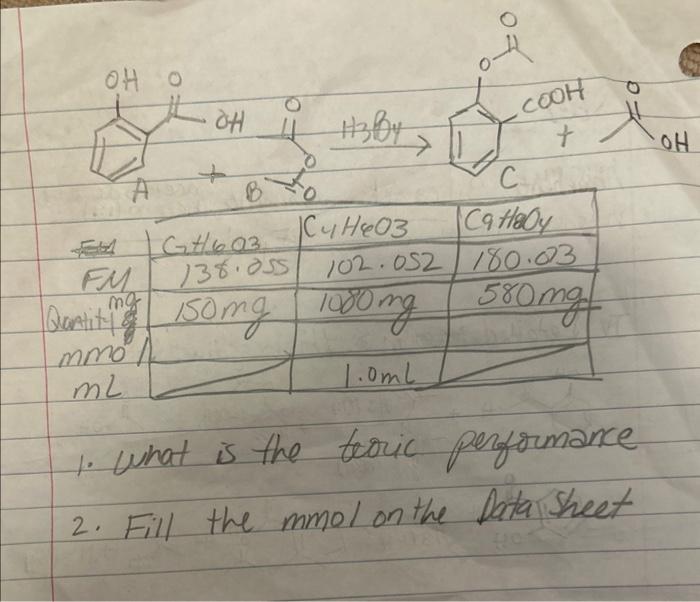 O
O
OH O
COOH
O
OH
O
H3BO4
+
OH
O
A + B O
C
C7H6O3 C4H6O3 C9H8O4
FM 138.055 102.052 180.03
Quantity mg 150mg 1080mg 580mg
mmol
mL 1.0mL
1. What is the teoric performance
2. Fill the mmol on the Data Sheet